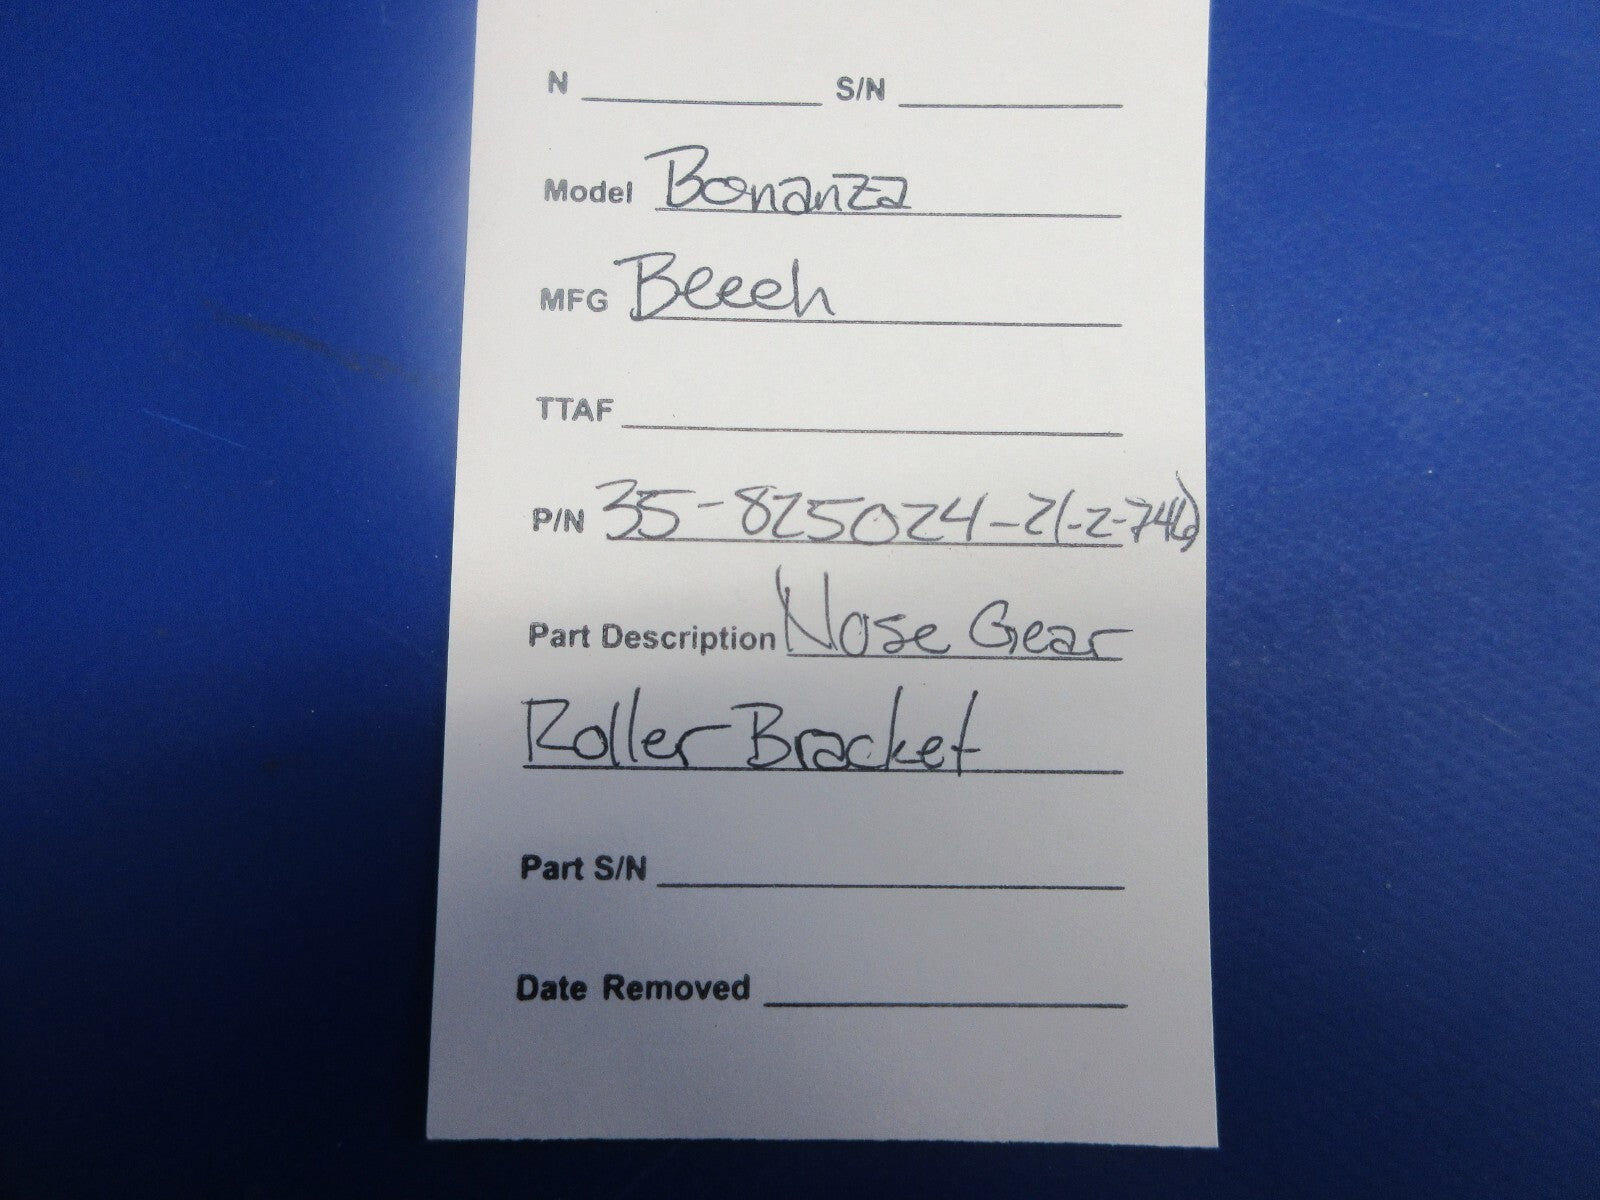 N S/N
Model Bonanza
MFG Beech
TTAF
P/N 35-825024-2(-2-746)
Part Description Nose Gear
Roller Bracket
Part S/N
Date Removed